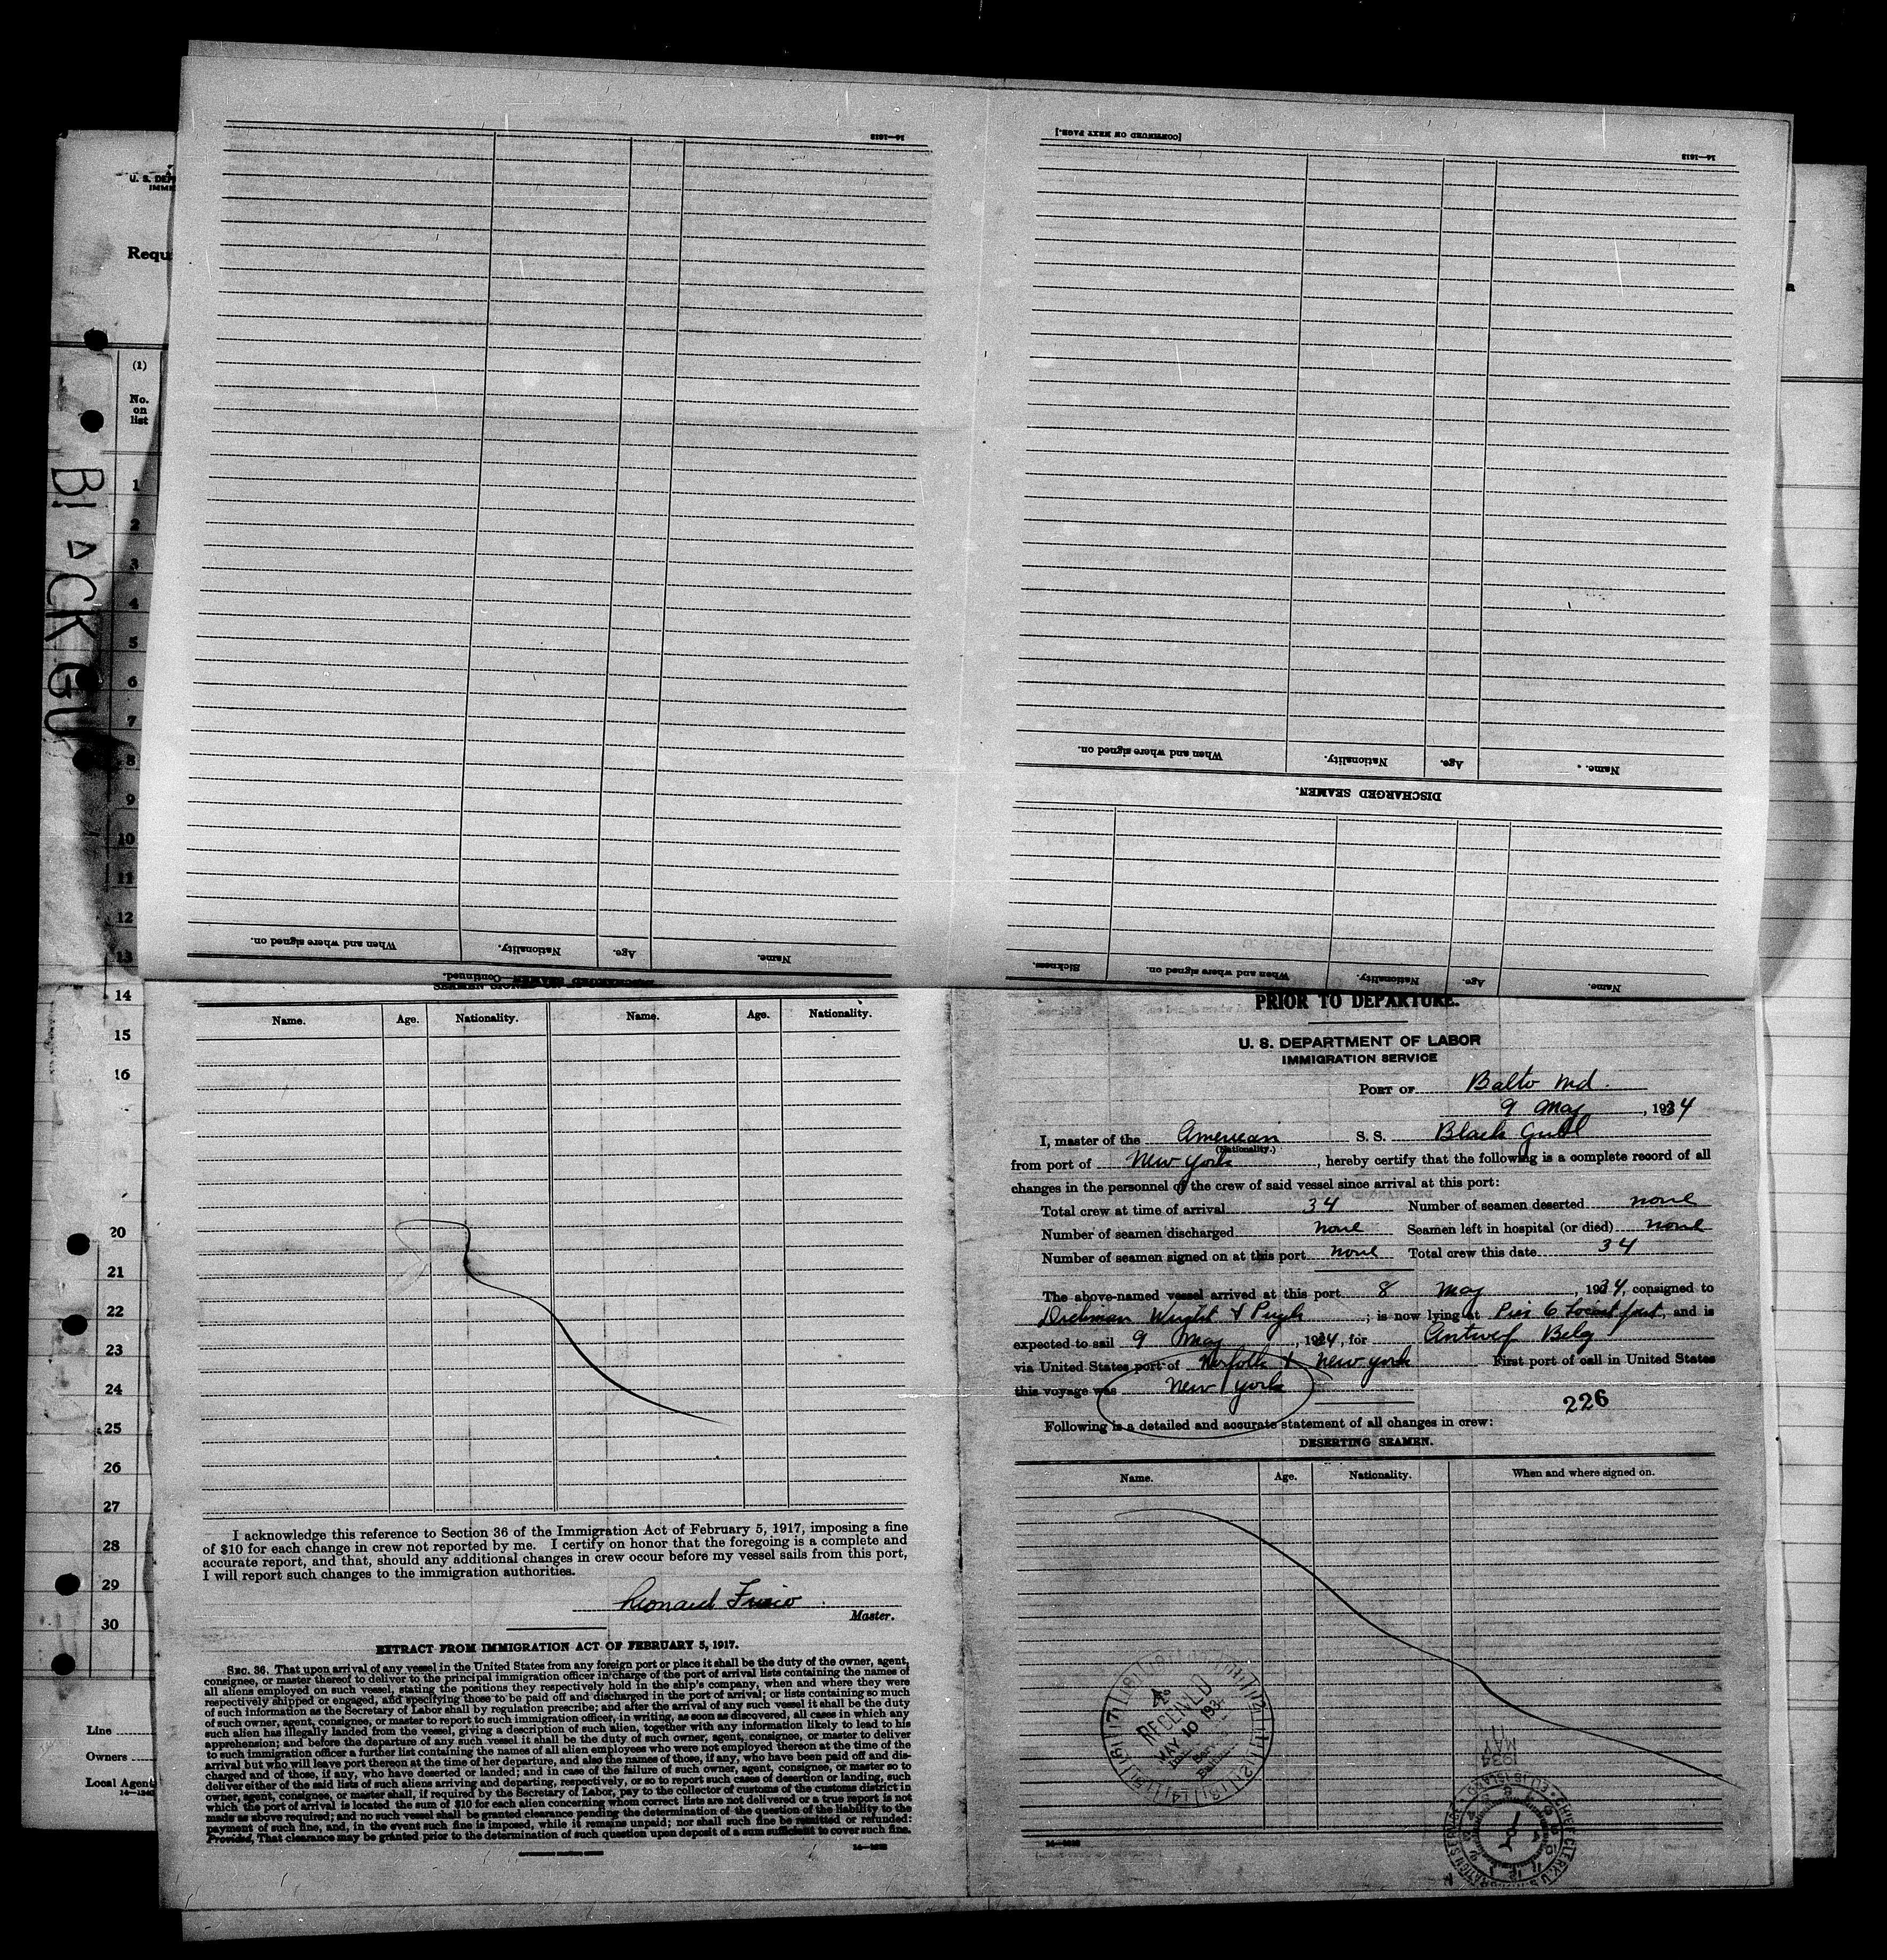 U. S. DEP
IMMI
Requ
(1)
No.
on
list
BLACK GU
1
2
3
4
5
6
7
8
9
10
11
12
13
14
15
16
20
21
22
23
24
25
26
27
28
29
30
Line
Owners
Local Agent
16—1613
[CONTINUED ON NEXT PAGE.]
16—1613
When and where signed on. Nationality. Age. Name.
DISCHARGED SEAMEN.
When and where signed on. Nationality. Age. Name.
DISCHARGED SEAMEN—Continued.
Sickness. When and where signed on. Nationality. Age. Name.
Name. Age. Nationality. Name. Age. Nationality.
I acknowledge this reference to Section 36 of the Immigration Act of February 5, 1917, imposing a fine
of $10 for each change in crew not reported by me. I certify on honor that the foregoing is a complete and
accurate report, and that, should any additional changes in crew occur before my vessel sails from this port,
I will report such changes to the immigration authorities.
Leonard
Master.
EXTRACT FROM IMMIGRATION ACT OF FEBRUARY 5, 1917.
SEC. 36. That upon arrival of any vessel in the United States from any foreign port or place it shall be the duty of the owner, agent,
consignee, or master thereof to deliver to the principal immigration officer in charge of the port of arrival lists containing the names of
all aliens employed on such vessel, stating the positions they respectively hold in the ship's company, when and where they were
respectively shipped or engaged, and specifying those to be paid off and discharged in the port of arrival; or lists containing so much
of such information as the Secretary of Labor shall by regulation prescribe; and after the arrival of any such vessel it shall be the duty
of such owner, agent, consignee, or master to report to such immigration officer, in writing, as soon as discovered, all cases in which any
such alien has illegally landed from the vessel, giving a description of such alien, together with any information likely to lead to his
apprehension; and before the departure of any such vessel it shall be the duty of such owner, agent, consignee, or master to deliver
to such immigration officer a further list containing the names of all alien employees who were not employed thereon at the time of the
arrival but who will leave port thereon at the time of her departure, and also the names of those, if any, who have been paid off and dis-
charged and of those, if any, who have deserted or landed; and in case of the failure of such owner, agent, consignee, or master so to
deliver either of the said lists of such aliens arriving and departing, respectively, or so to report such cases of desertion or landing, such
owner, agent, consignee, or master shall, if required by the Secretary of Labor, pay to the collector of customs of the customs district in
which the port of arrival is located the sum of $10 for each alien concerning whom correct lists are not delivered or a true report is not
made as above required; and no such vessel shall be granted clearance pending the determination of the question of the liability to the
payment of such fine, and, in the event such fine is imposed, while it remains unpaid; nor shall such fine be remitted or refunded:
Provided, That clearance may be granted prior to the determination of such question upon deposit of a sum sufficient to cover such fine.
PRIOR TO DEPARTURE.
U. S. DEPARTMENT OF LABOR
IMMIGRATION SERVICE
PORT OF Balto Md.
9 May, 1934
I, master of the American S. S. Black Gull
(Nationality.)
from port of New York, hereby certify that the following is a complete record of all
changes in the personnel of the crew of said vessel since arrival at this port:
Total crew at time of arrival 34 Number of seamen deserted none
Number of seamen discharged none Seamen left in hospital (or died) none
Number of seamen signed on at this port none Total crew this date 34
The above-named vessel arrived at this port 8 May, 1934, consigned to
Wright & Pugh; is now lying at Pier 6 Locust Point, and is
expected to sail 9 May, 1934, for Antwerp Belg
via United States port of Norfolk & New York First port of call in United States
this voyage was New York
226
Following is a detailed and accurate statement of all changes in crew:
DESERTING SEAMEN.
Name. Age. Nationality. When and where signed on.
RECEIVED
MAY 10 193
MAY 11
1934
CHIEF CLERK, U.S. IMMIGRATION SERVICE • ELLIS ISLAND •